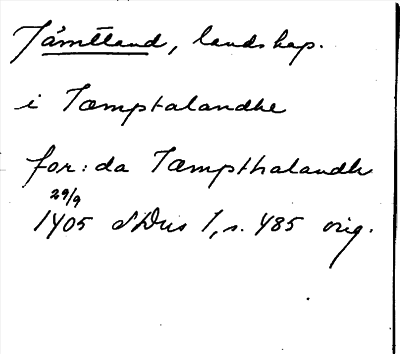 Jämtland, landskap.
i Iæmptalandhe
for:da Iæmpthalandh
29/9
1405 SDns 1, s. 485 orig.